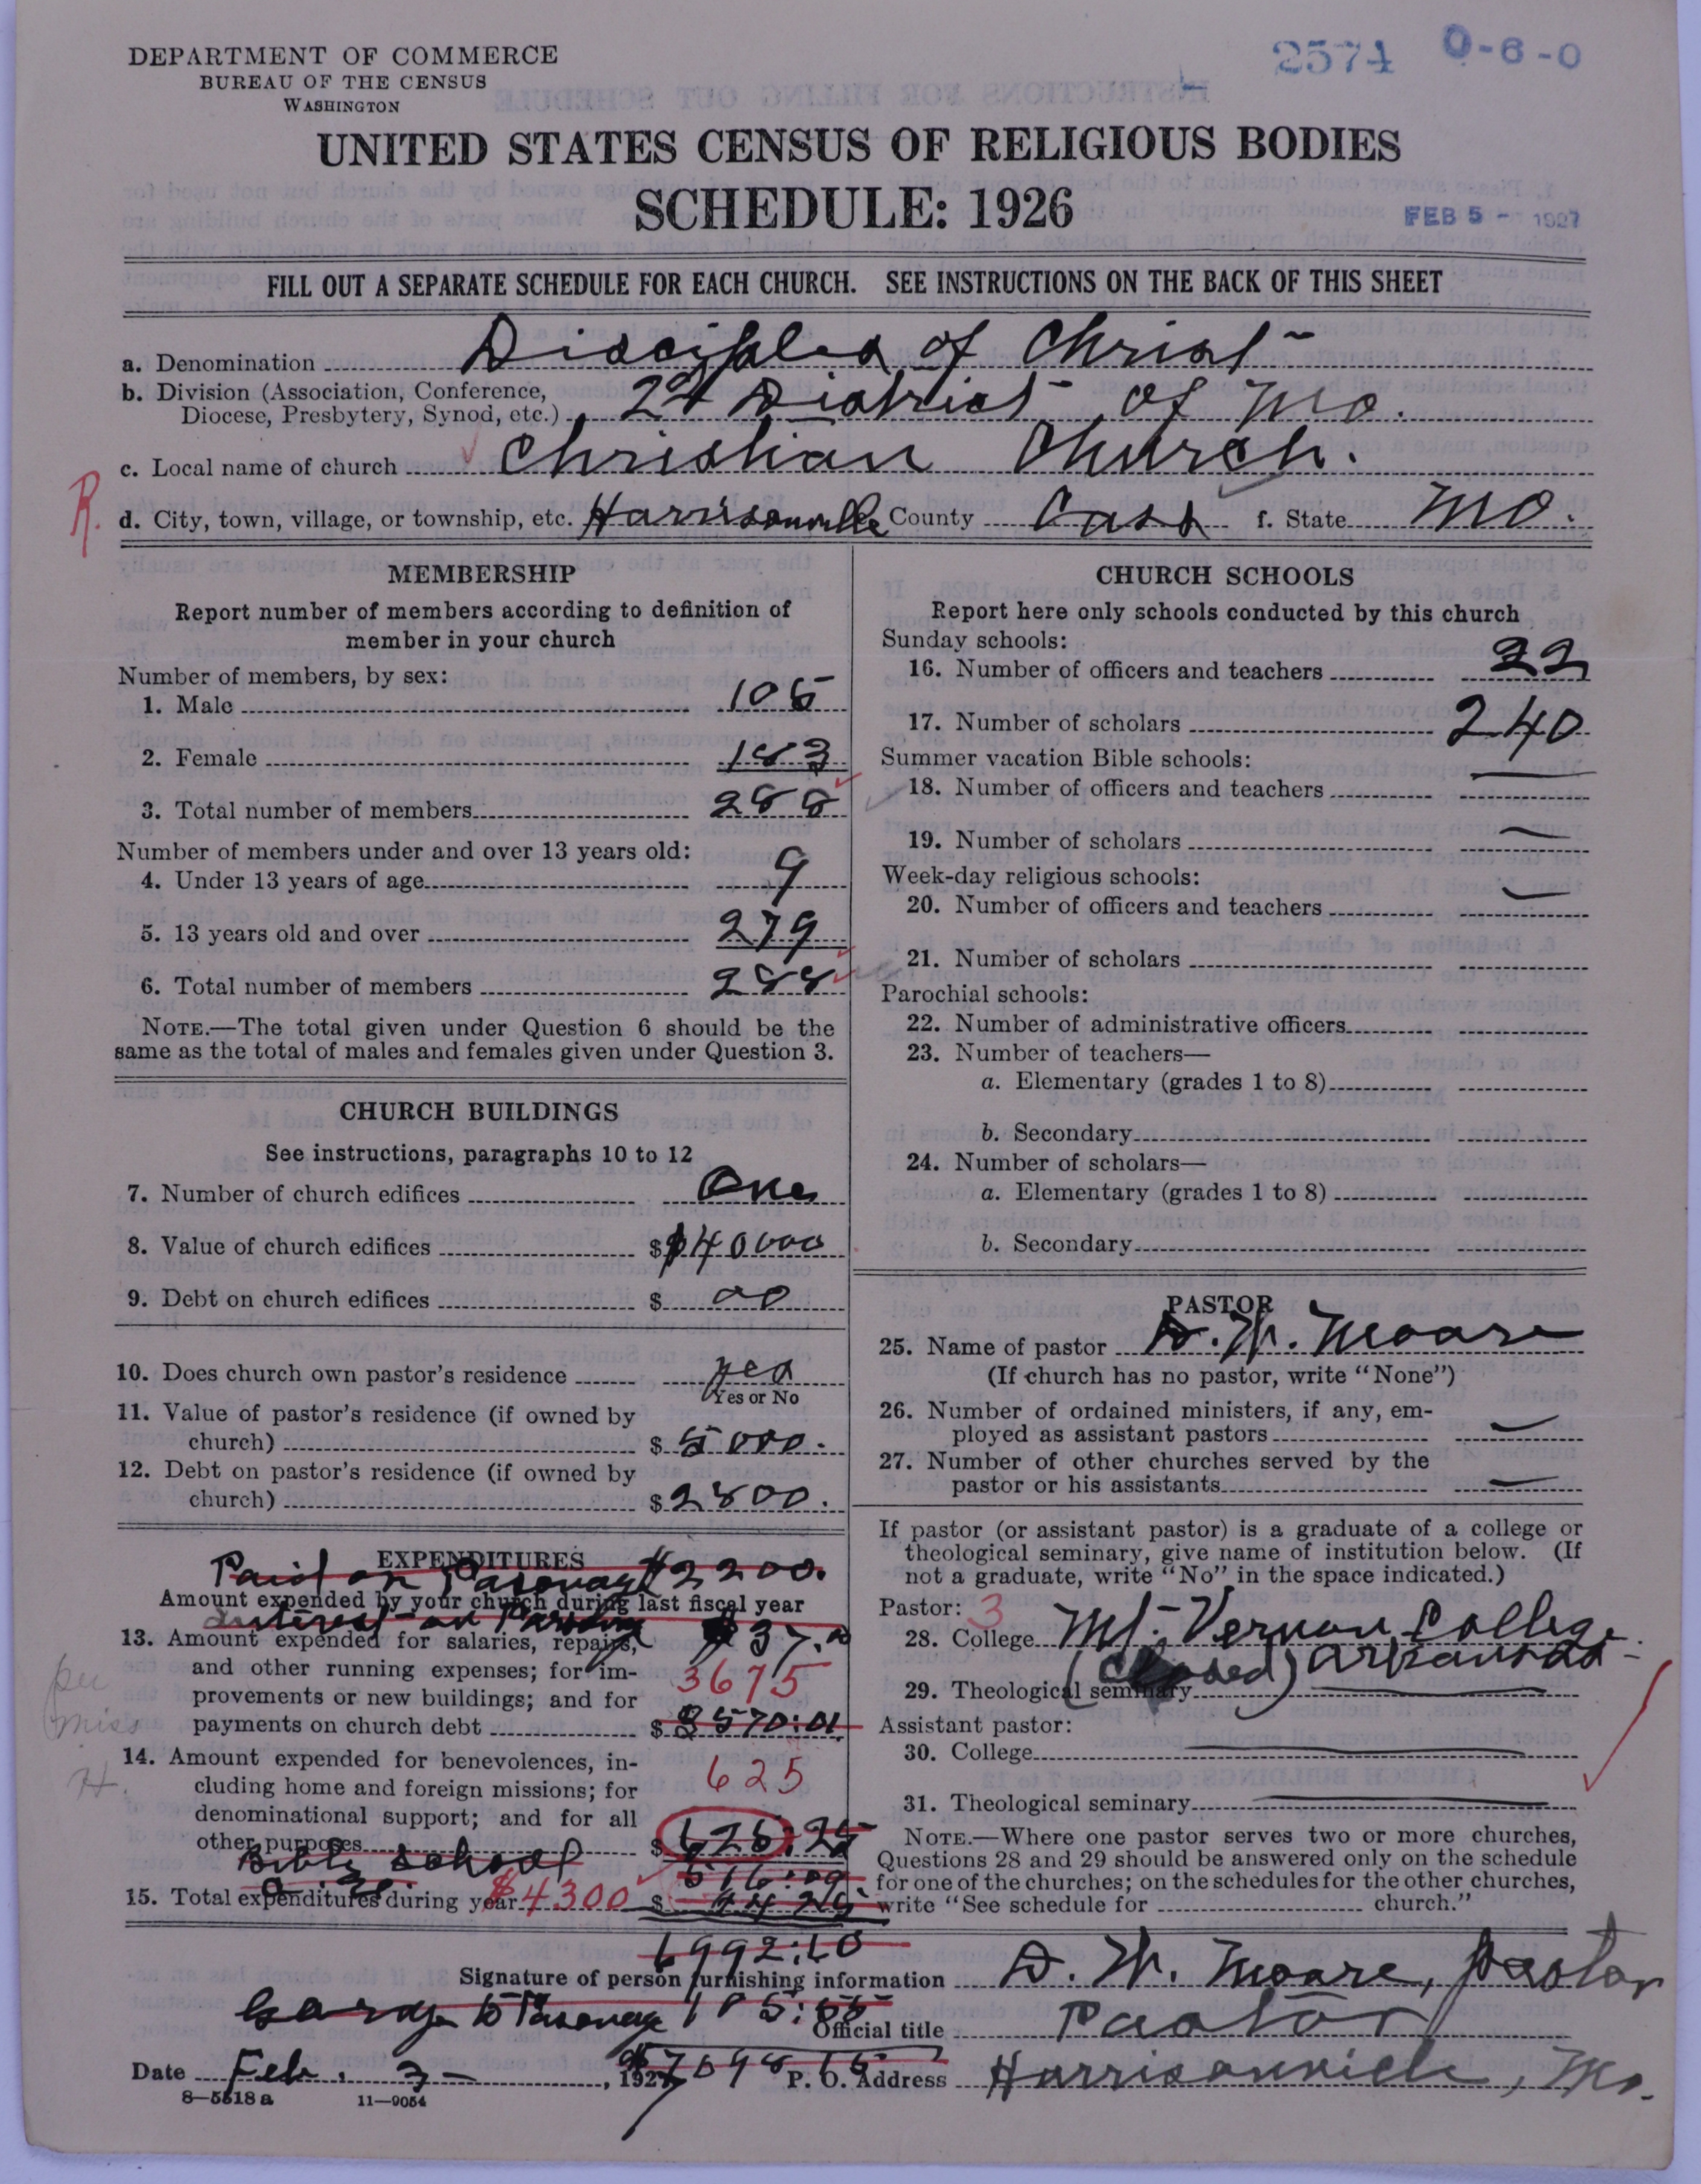 DEPARTMENT OF COMMERCE
BUREAU OF THE CENSUS
WASHINGTON
2574 0-6-0
UNITED STATES CENSUS OF RELIGIOUS BODIES
SCHEDULE: 1926
FEB 5 - 1927
FILL OUT A SEPARATE SCHEDULE FOR EACH CHURCH. SEE INSTRUCTIONS ON THE BACK OF THIS SHEET
a. Denomination Disciples of Christ
b. Division (Association, Conference,
Diocese, Presbytery, Synod, etc.) 2d District of Mo.
c. Local name of church Christian Church.
R.
d. City, town, village, or township, etc. Harrisonville County Cass f. State Mo.
MEMBERSHIP
Report number of members according to definition of
member in your church
Number of members, by sex:
1. Male 105
2. Female 183
3. Total number of members 288
Number of members under and over 13 years old:
4. Under 13 years of age 9
5. 13 years old and over 279
6. Total number of members 288
NOTE.—The total given under Question 6 should be the
same as the total of males and females given under Question 3.
CHURCH BUILDINGS
See instructions, paragraphs 10 to 12
7. Number of church edifices One
8. Value of church edifices $ $40000
9. Debt on church edifices $ 00
10. Does church own pastor's residence yes
Yes or No
11. Value of pastor's residence (if owned by
church) $ 5000.
12. Debt on pastor's residence (if owned by
church) $ 2800.
EXPENDITURES
Paid on Parsonage $2200.
Amount expended by your church during last fiscal year
interest on
13. Amount expended for salaries, repairs,
and other running expenses; for im-
provements or new buildings; and for
3675
payments on church debt $ 3570.01
14. Amount expended for benevolences, in-
cluding home and foreign missions; for
625
denominational support; and for all
other purposes $ 625.25
Bible School 516.09
15. Total expenditures during year $4300 $
6992.10
CHURCH SCHOOLS
Report here only schools conducted by this church
Sunday schools:
16. Number of officers and teachers 22
17. Number of scholars 240
Summer vacation Bible schools:
18. Number of officers and teachers —
19. Number of scholars —
Week-day religious schools:
20. Number of officers and teachers —
21. Number of scholars
Parochial schools:
22. Number of administrative officers
23. Number of teachers—
a. Elementary (grades 1 to 8)
b. Secondary
24. Number of scholars—
a. Elementary (grades 1 to 8)
b. Secondary
PASTOR
25. Name of pastor D. W. Moore
(If church has no pastor, write "None")
26. Number of ordained ministers, if any, em-
ployed as assistant pastors —
27. Number of other churches served by the
pastor or his assistants —
If pastor (or assistant pastor) is a graduate of a college or
theological seminary, give name of institution below. (If
not a graduate, write "No" in the space indicated.)
Pastor: 3
28. College Mt. Vernon College
(Closed) Arkansas
29. Theological seminary
Assistant pastor:
30. College
31. Theological seminary
NOTE.—Where one pastor serves two or more churches,
Questions 28 and 29 should be answered only on the schedule
for one of the churches; on the schedules for the other churches,
write "See schedule for church."
Signature of person furnishing information D. W. Moore, pastor
Official title Pastor
Date Feb. 3 —, 1927 P. O. Address Harrisonville, Mo.
8—5518 a 11—9054